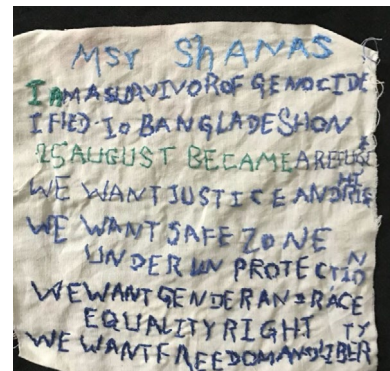 MSr ShANAS
I AM A SURVIVOR OF GENOCIDE
I FlED To BANGLADESH ON
25 AUGUST BECAME A REFUGE
WE WANT JUSTICE AND
WE WANT SAFE ZONE
UNDER UN PROTECTION
WE WANT GENDER AND RACE
EQUALITY RIGHT
WE WANT FREEDOM AND LIBERTY